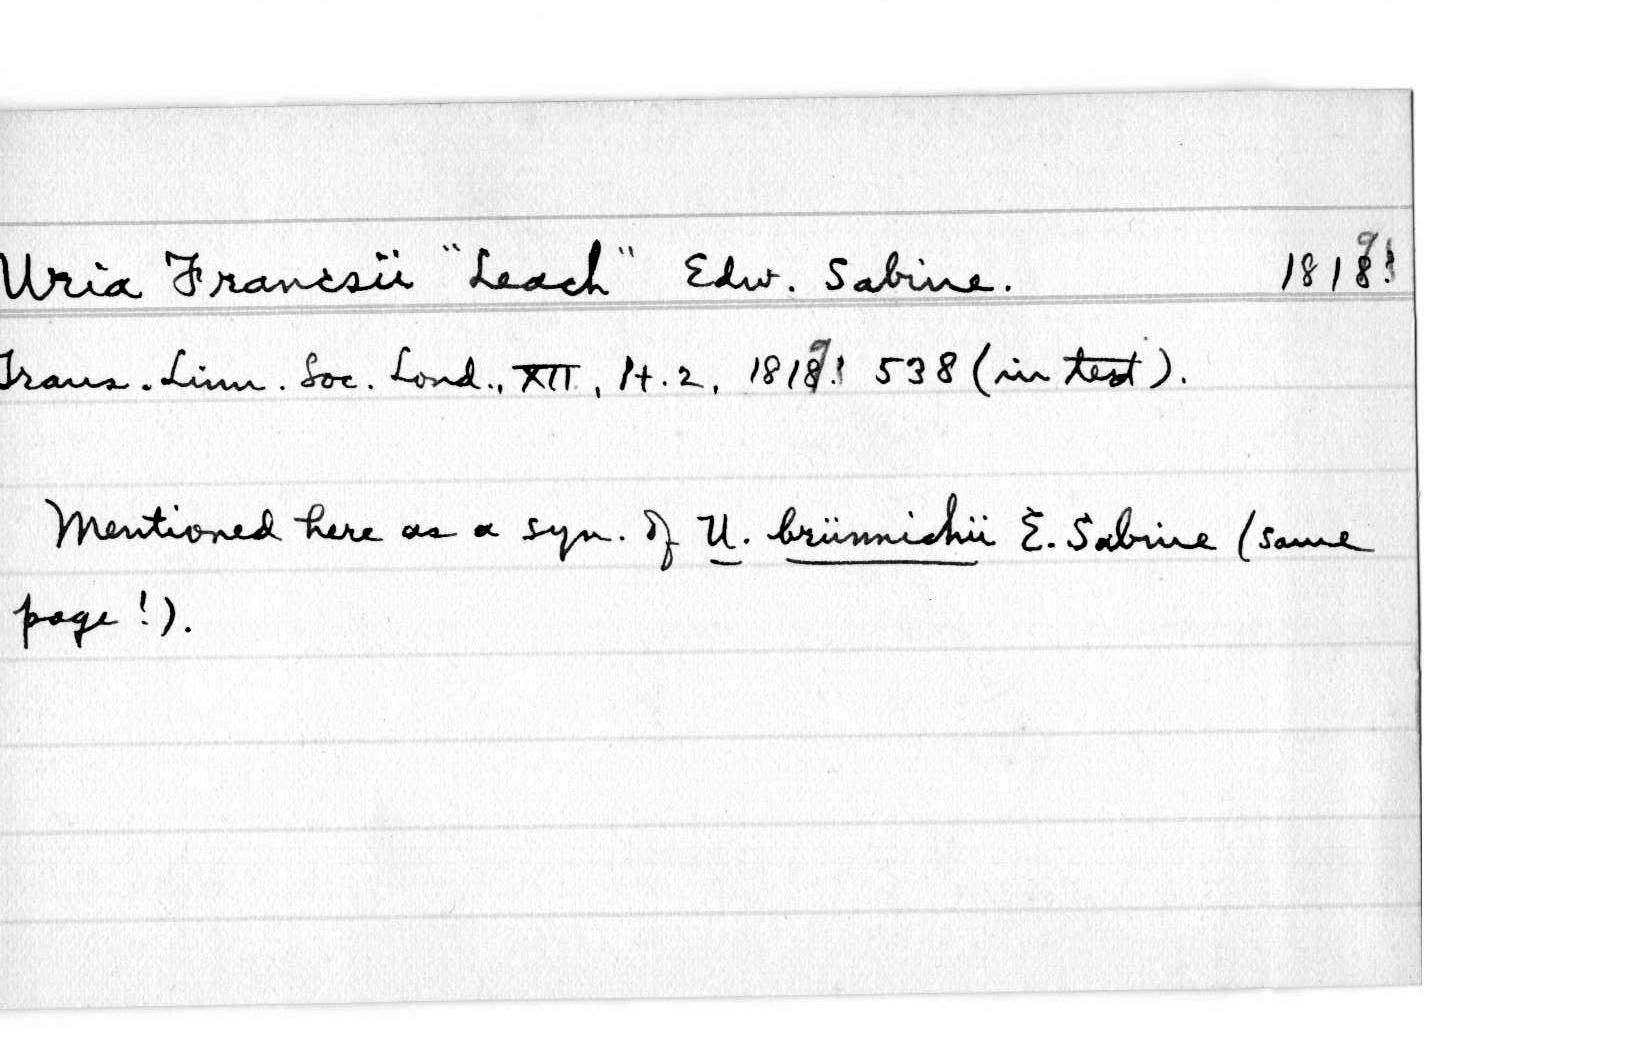 Uria Francsii "Leach" Edw. Sabine. 1819!
Trans. Linn. Soc. Lond., XII, Pt. 2, 1819! 538 (in text).
Mentioned here as a syn. of U. brünnichii E. Sabine (same
page!).